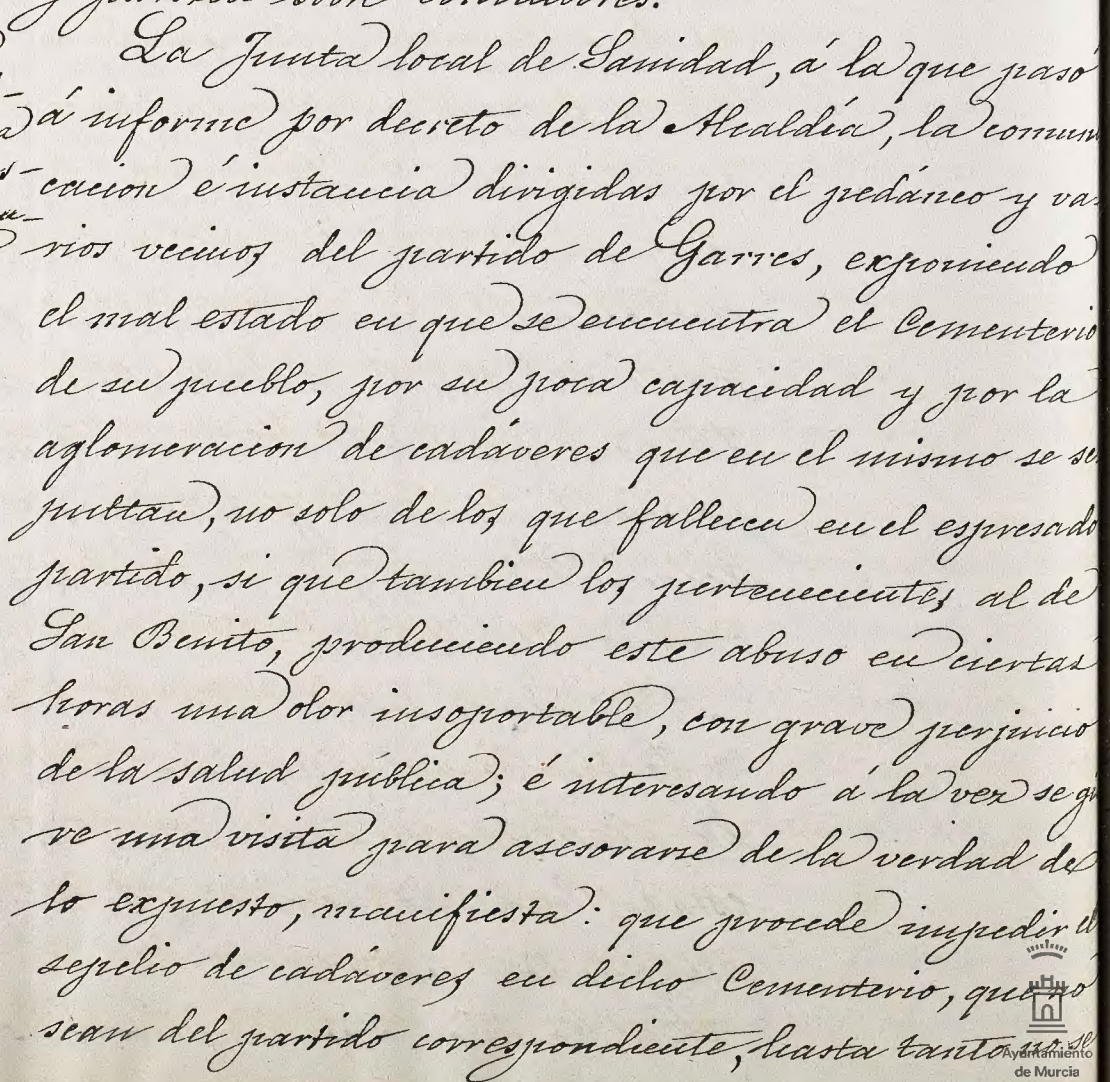 La Junta local de Sanidad, á la que pasó
á informe por decreto de la Alcaldía, la comuni
cacion é instancia dirigidas por el pedáneo y va-
rios vecinos del partido de Garres, exponiendo
el mal estado en que se encuentra el Cementerio
de su pueblo, por su poca capacidad y por la
aglomeracion de cadáveres que en el mismo se se
pultan, no solo de los que fallecen en el espresado
partido, si que tambien los pertenecientes al de
San Benito, produciendo este abuso en ciertas
horas una olor insoportable, con grave perjuicio
de la salud pública; é interesando á la vez se gi
re una visita para asesorarse de la verdad de
lo expuesto, manifiesta: que procede impedir el
sepelio de cadáveres en dicho Cementerio, que no
sean del partido correspondiente, hasta tanto no se
Ayuntamiento
de Murcia